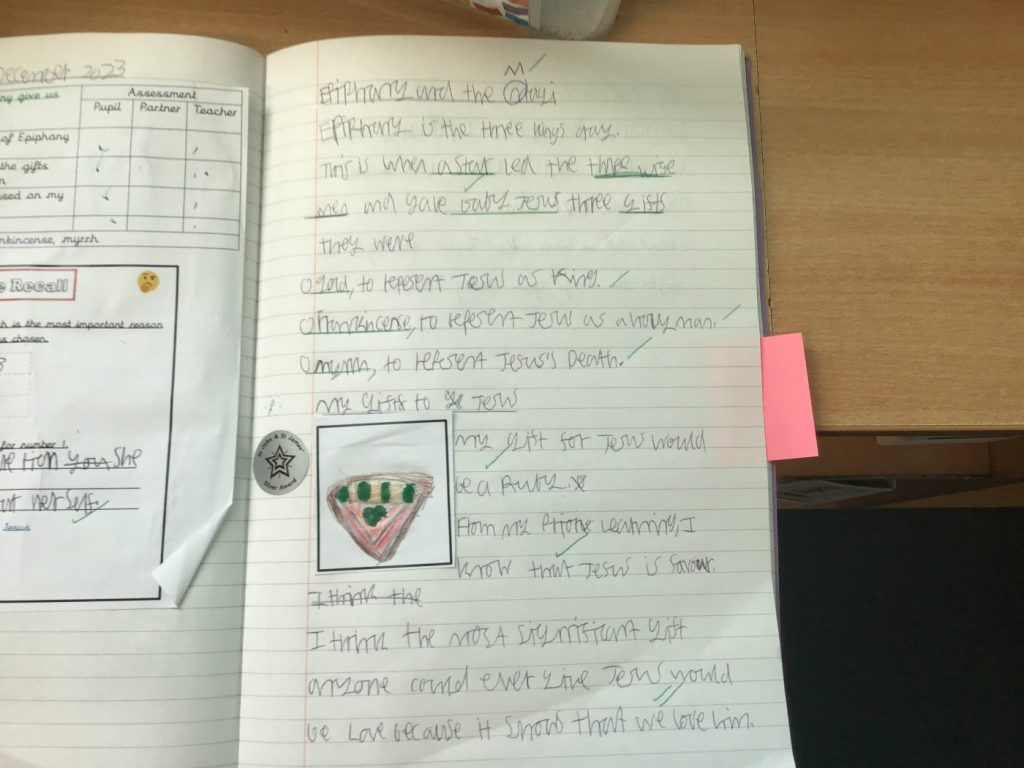 December 2023
ny give us
Assessment
Pupil Partner Teacher
of Epiphany
the gifts
n
sed on my
nkincense, myrrh
e Recall
ch is the most important reason
s chosen.
for number 1.
you She
out herself.
Jesus
M
Epiphany and the dayi
Epiphany is the three kings day.
This is when a star led the three wise
men and gave baby Jesus three gifts
they were
gold, to represent Jesus as King.
Frankincense, to represent Jesus as a holy man.
myrrh, to represent Jesus's Death.
my Gifts to Jesus
Silver Award
My gift for Jesus would
be a Ruby.
From my Priory Learning, I
know that Jesus is
I think the
I think the most significant gift
anyone could ever give Jesus would
be Love because it shows that we love him.